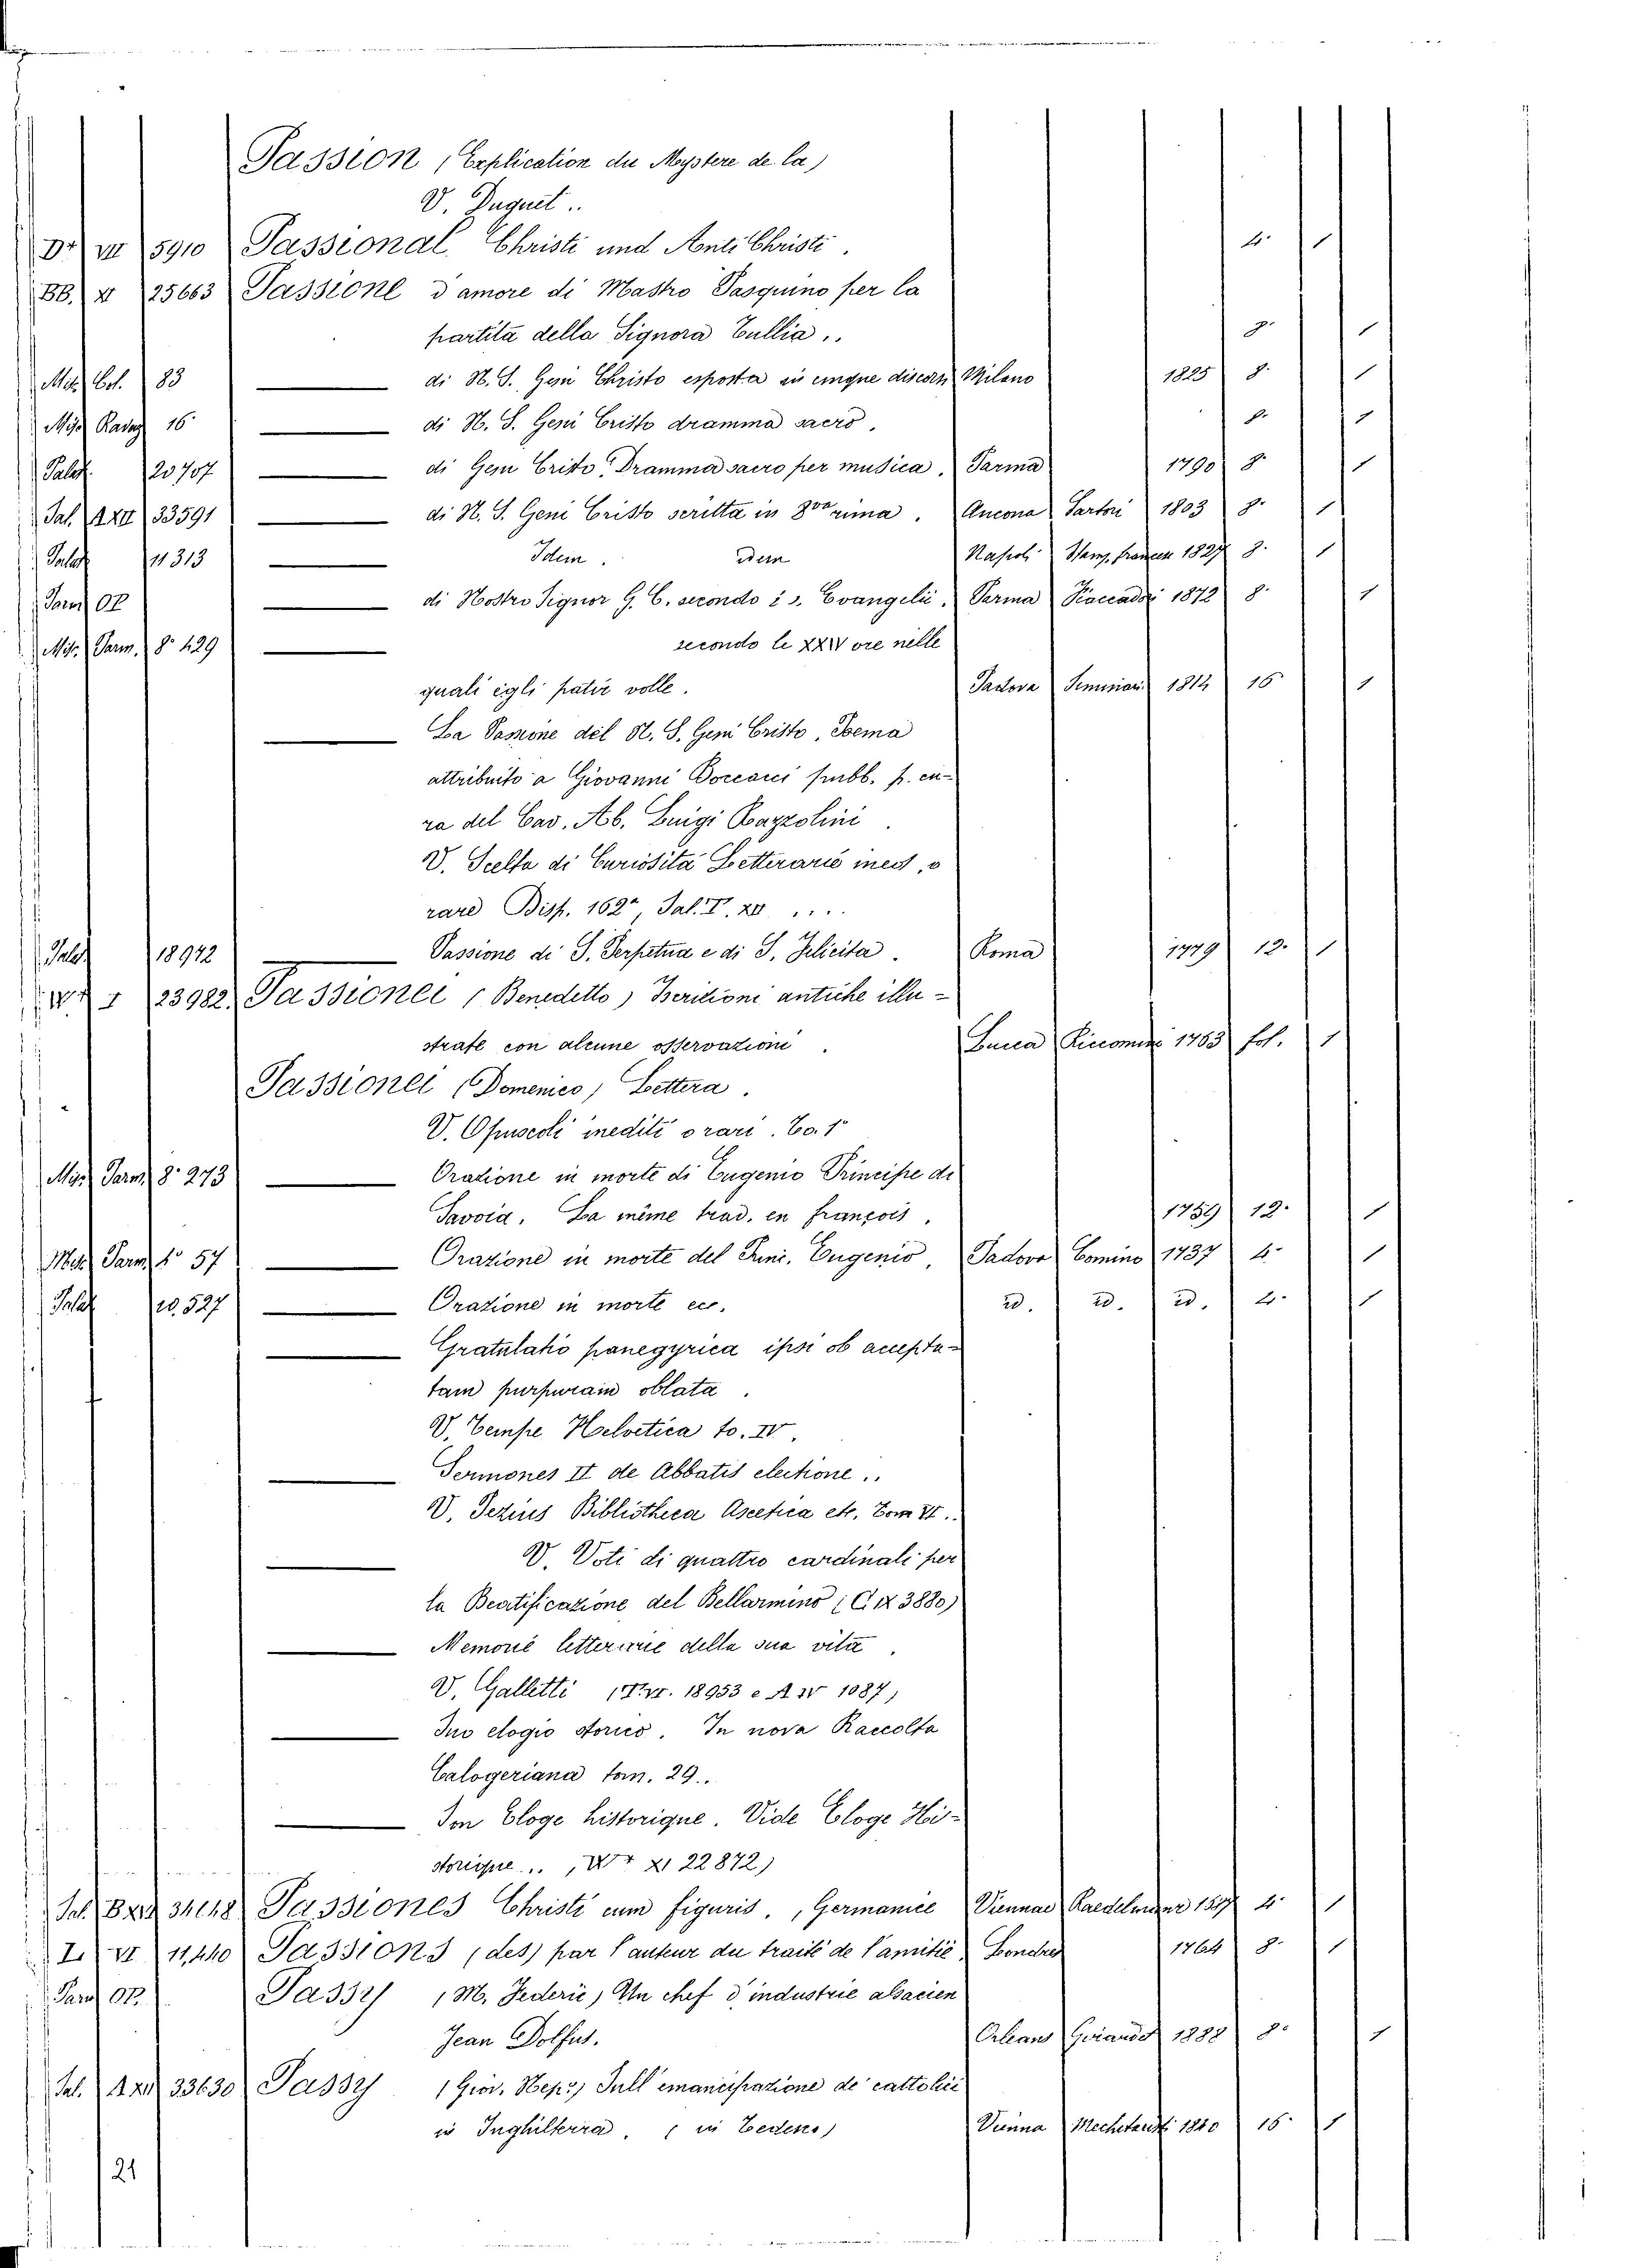 Passion (Explication du Mystere de la)
V. Duguet..
VII 5910 Passional Christi und AntiChristi. 4. 1
BB. XI 25663 Passione d'amore di Mastro Pasquino per la
partita della Signora Tullia.. 8. 1
Misc. Col. 83 di N. S. Gesù Christo esposta in cinque discorsi Milano 1825 8. 1
Misc. 16 di N. S. Gesù Cristo dramma sacro. 8. 1
Palat. 20707 di Gesù Cristo. Dramma sacro per musica. Parma 1790 8. 1
Sal. XXII 33591 di N. S. Gesù Cristo scritta in 8va rima. Ancona Sartori 1803 8. 1
Palat. 11313 Idem. idem Napoli Stamp. francese 1827 8. 1
Parm. OP. di Nostro Signor G. C. secondo i s. Evangelii. Parma Fiaccadori 1872 8. 1
Misc. Parm. 8° 429 secondo le XXIV ore nelle
quali egli patir volle. Padova Seminario 1812 16 1
La Passione del N. S. Gesù Cristo, Poema
attribuito a Giovanni Boccacci pubb. p. cu-
ra del Cav. Ab. Luigi Razzolini.
V. Scelta di Curiosità Letterarie ined. o
rare Disp. 162a, Sal. ....
Palat. 18942 Passione di S. Perpetua e di S. Felicita. Roma 1779 12. 1
I 23982 Passionei (Benedetto) Iscrizioni antiche illu-
strate con alcune osservazioni. Lucca Riccomini 1763 fol. 1
Passionei (Domenico) Lettera.
V. Opuscoli inediti o rari. To. 1°
Misc. Parm. 8° 273 Orazione in morte di Eugenio Principe di
Savoia. La même trad. en françois. 1759 12. 1
Misc. Parm. 4° 57 Orazione in morte del Princ. Eugenio. Padova Comino 1737 4. 1
Palat. 20,527 Orazione in morte ecc. id. id. id. 4. 1
Gratulatio panegyrica ipsi ob accepta-
tam purpuram oblata.
V. Tempe Helvetica to. IV.
Sermones II de Abbatis electione..
V. Pezius Bibliotheca Ascetica etc. Tom VI.
V. Voti di quattro cardinali per
la Beatificazione del Bellarmino (C. IX 3880)
Memorie letterarie della sua vita.
V. Galletti (VI. 18953 e A IV 1087)
Suo elogio storico. In nova Raccolta
Calogeriana tom. 29..
Son Eloge historique. Vide Eloge His-
torique.., XI 22872)
Sal. 34148 Passiones Christi cum figuris., Germanice Viennae 4. 1
I. VI 11,440 Passions (des) par l'auteur du traité de l'amitié Londres 1764 8. 1
Parm. OP. Passy (M. Federic) Un chef d'industrie alsacien
Jean Dolfus. Orleans 1888 8. 1
Sal. 33630 Passy (Giov. Nep.) Sull'emancipazione de' cattolici
in Inghilterra. (in Tedesco) Vienna Mechetaristi 1840 16. 1
21